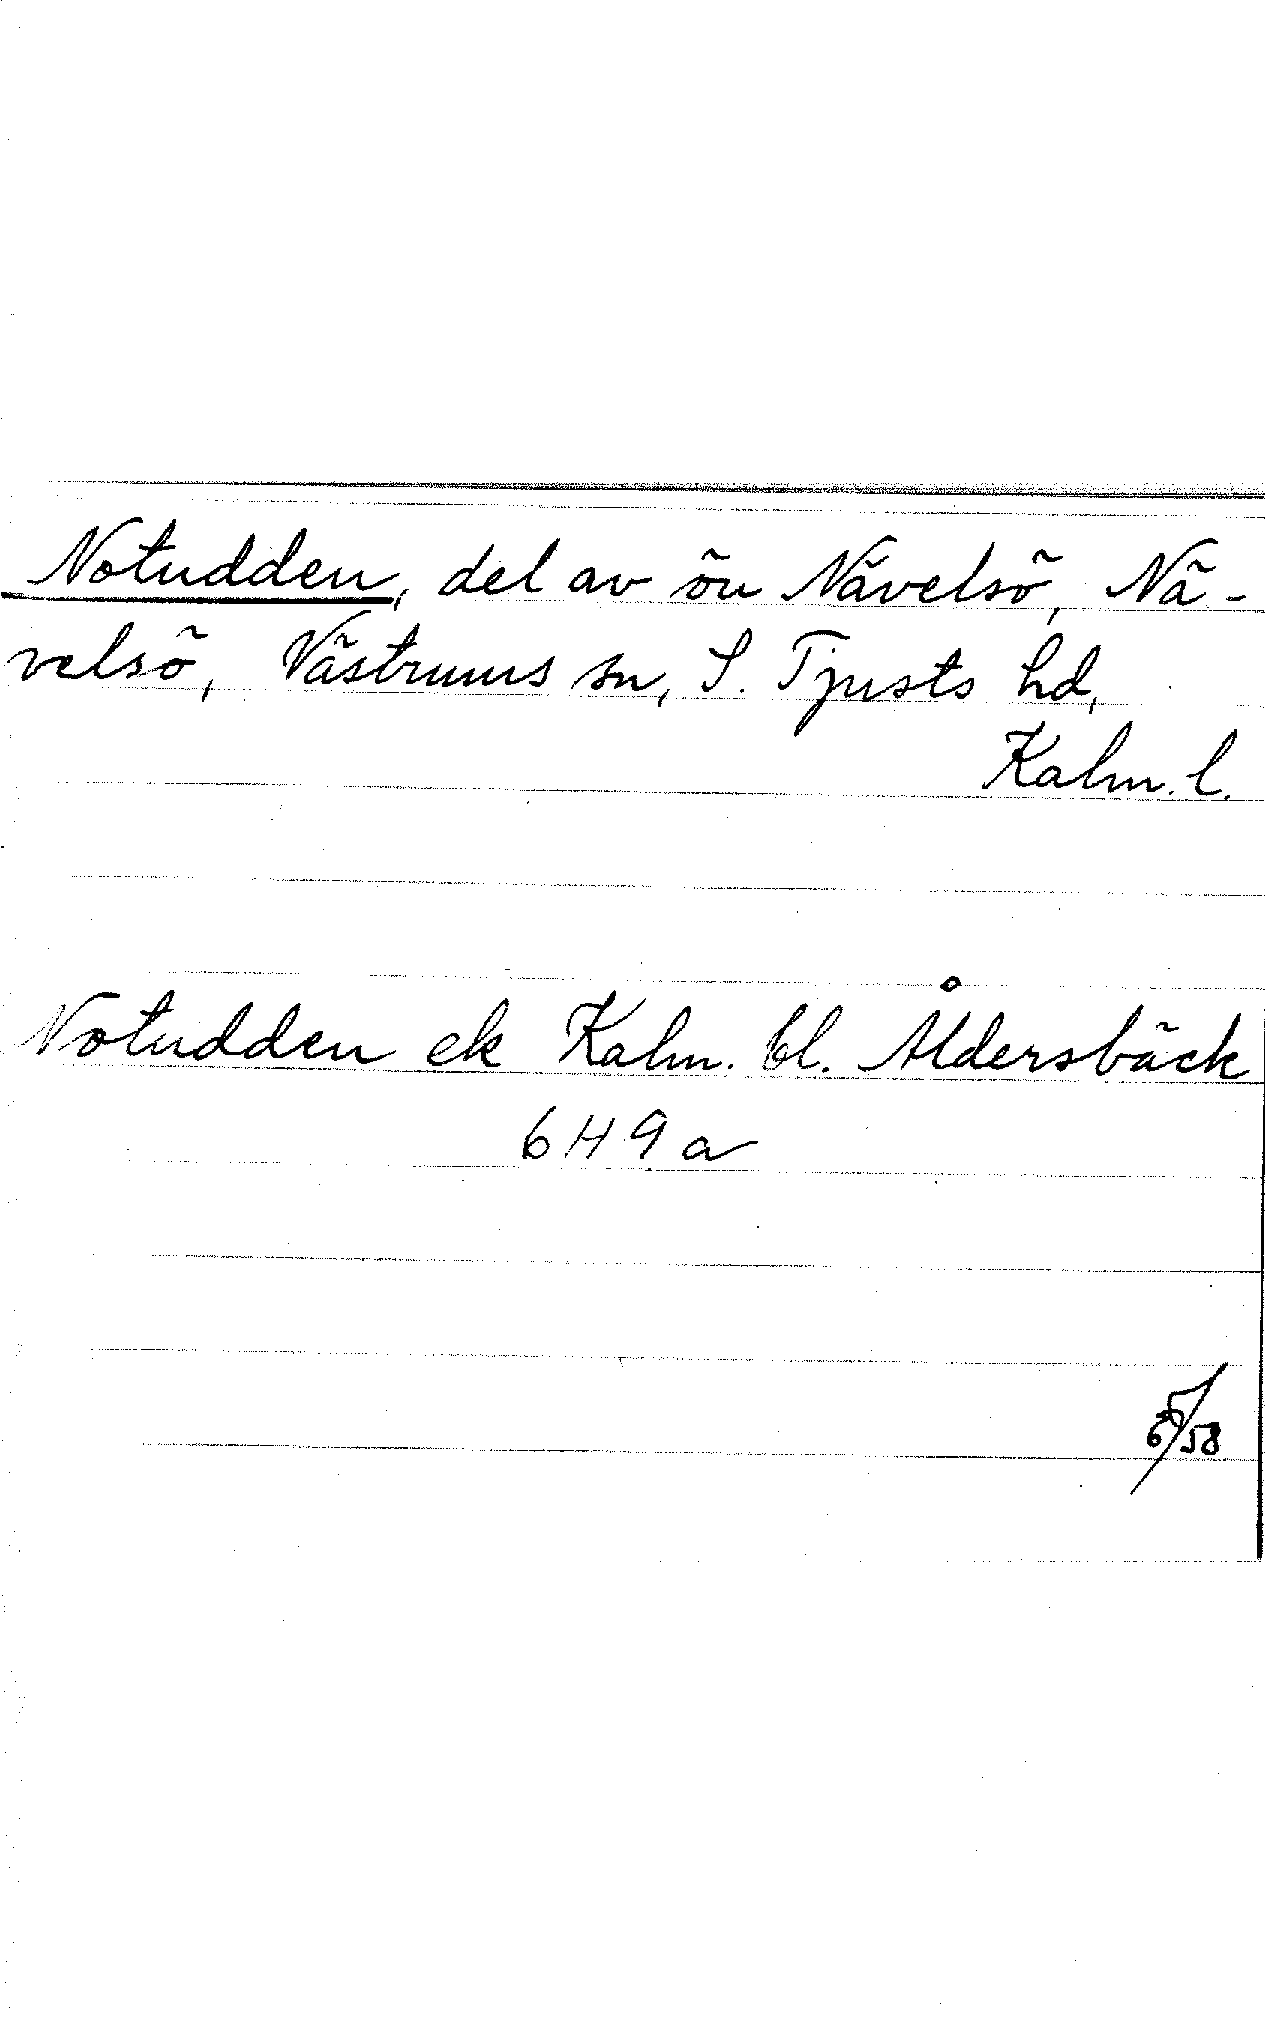 Notudden, del av ön Nävelsö, Nä-
velsö, Västrums sn, S. Tjusts hd,
Kalm. l.
Notudden ek Kalm. bl. Åldersbäck
6H9a